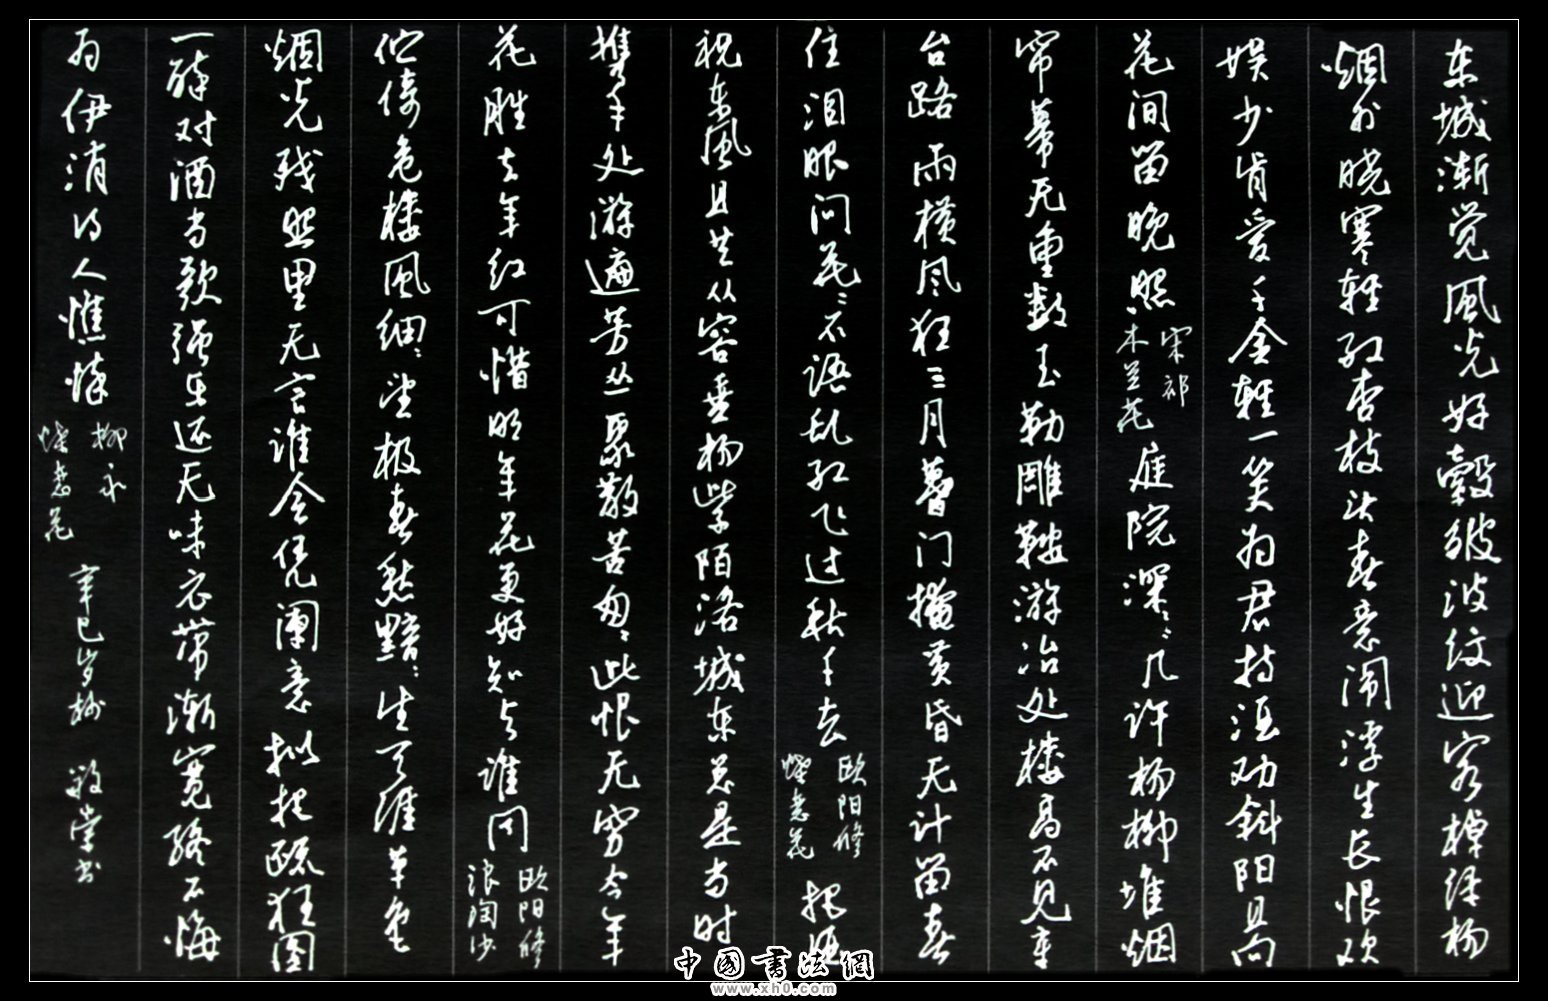 东城渐觉風光好縠皱波纹迎客棹绿杨
烟外晓寒轻红杏枝头春意闹浮生长恨欢
娱少肯爱千金轻一笑为君持酒劝斜阳且向
花间留晚照
宋祁
木兰花
庭院深々几许杨柳堆烟
帘幕无重数玉勒雕鞍游冶处楼高不见章
台路雨横风狂三月暮门掩黄昏无计留春
住泪眼问花々不语乱红飞过秋千去
欧阳修
蝶恋花
把酒
祝东風且共从容垂杨紫陌洛城东总是当时
携手处游遍芳丛聚散苦匆々此恨无穷今年
花胜去年红可惜明年花更好知与谁同
欧阳修
浪淘沙
伫倚危楼風细々望极春愁黯々生天涯草色
烟光残照里无言谁会凭阑意拟把疏狂图
一醉对酒当歌强乐还无味衣带渐宽终不悔
为伊消得人憔悴
柳永
蝶恋花
辛巳岁
书
中國書法網
www.xh0.com